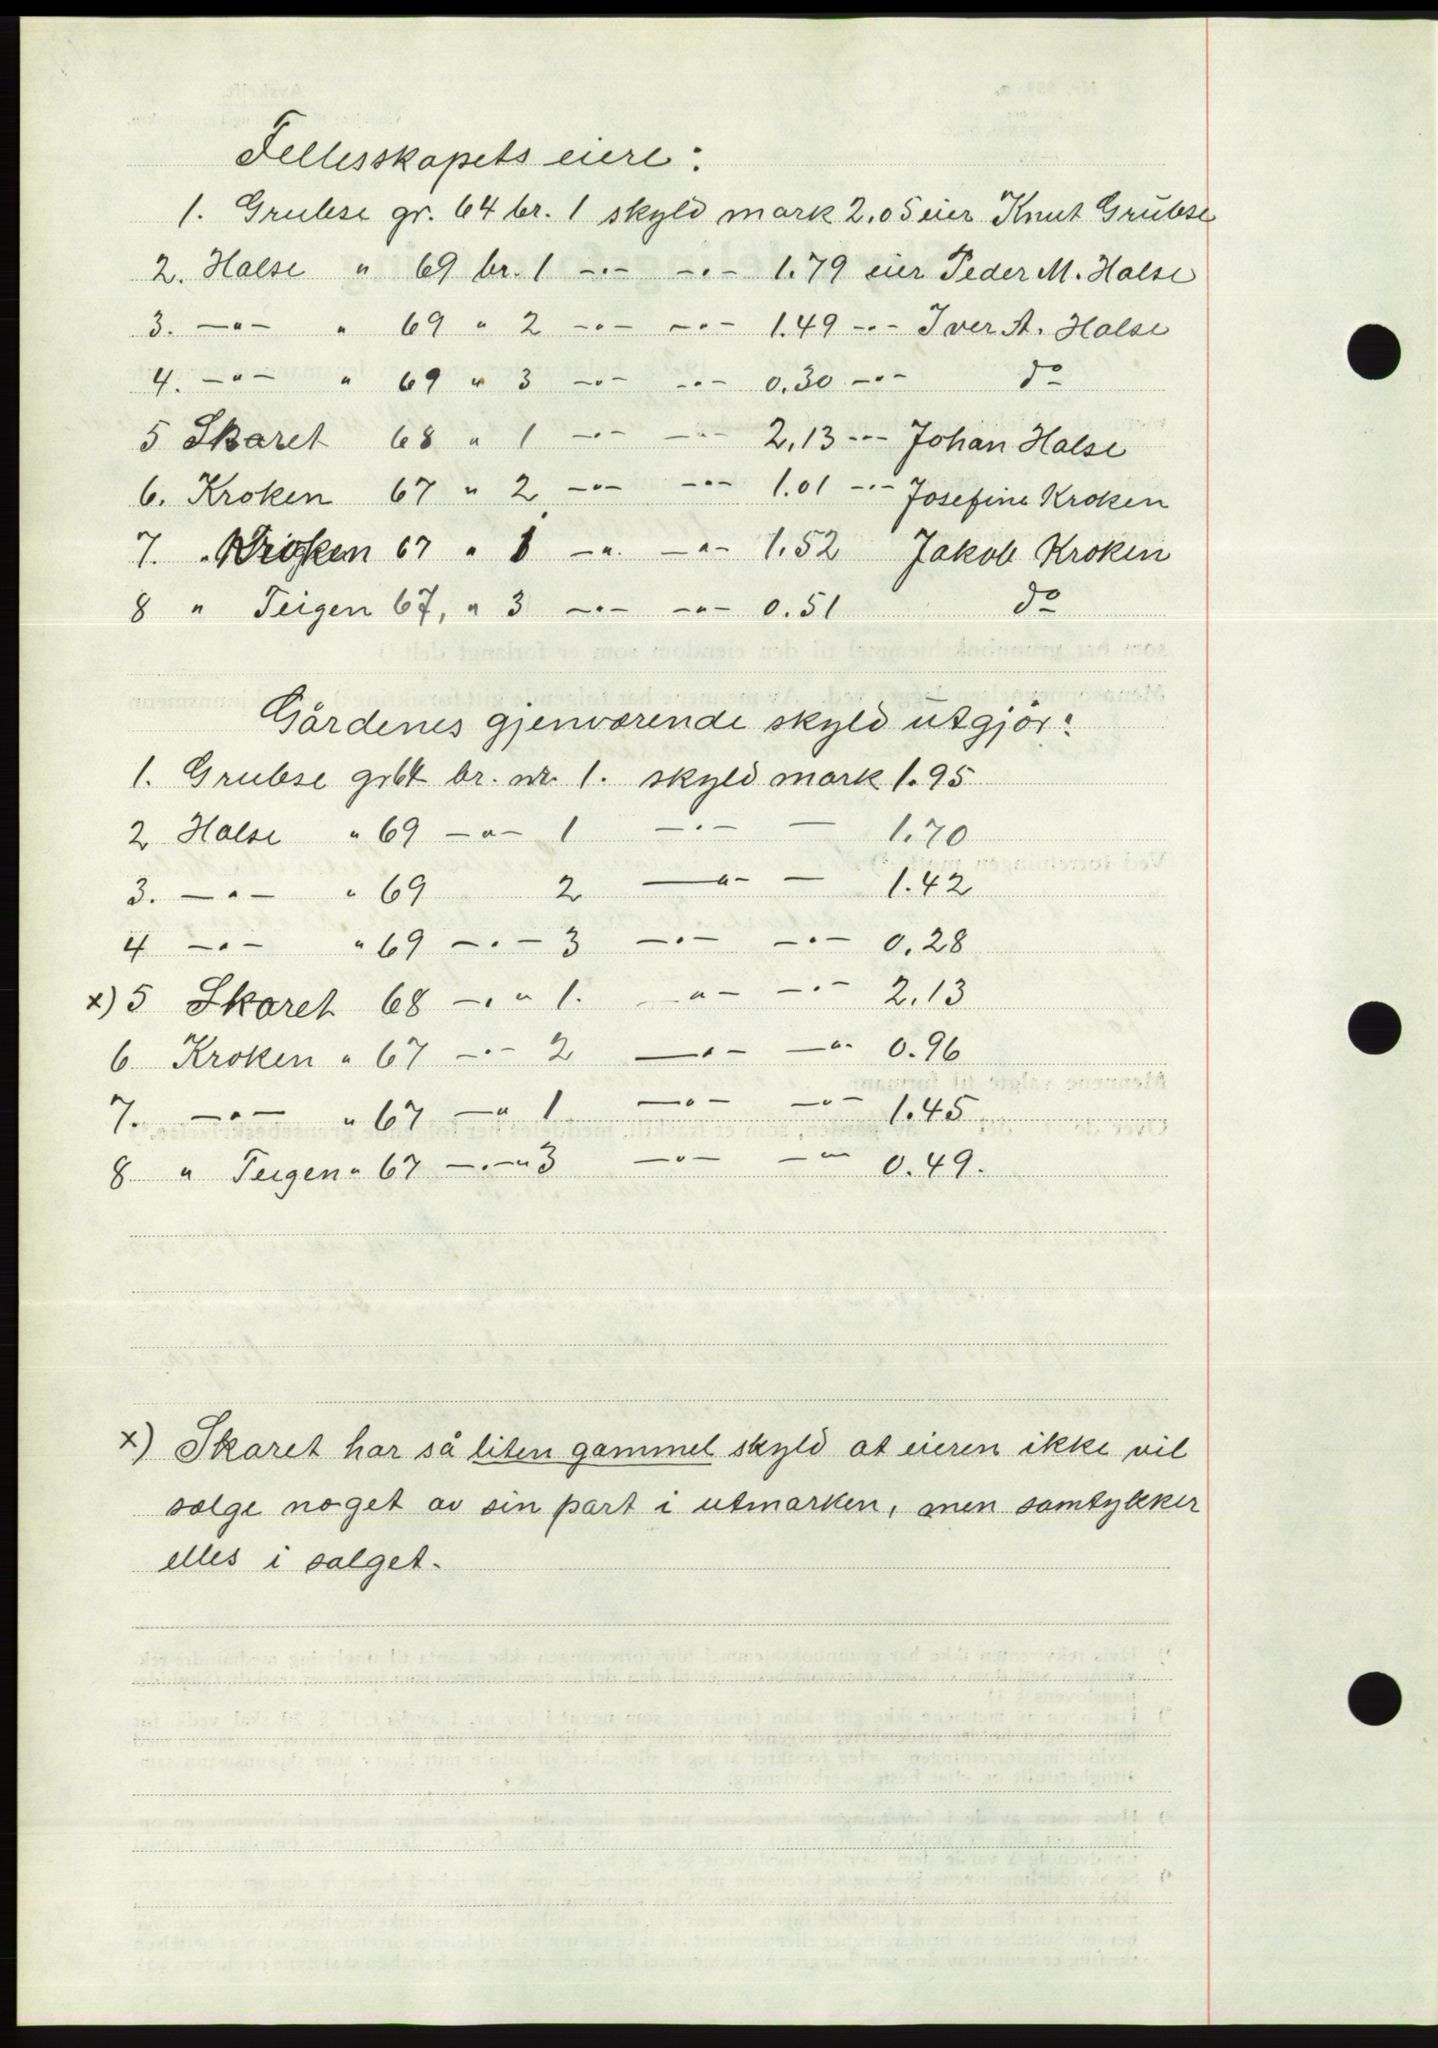 Fellesskapets eiere:
1. Grubse gr. 64 br. 1 skyld mark 2.05 eier Knut Grubse
2. Halse " 69 br. 1 -"- -"- 1.79 eier Peder M. Halse
3. -"- " 69 " 2 -"- -"- 1.49 -"- Iver A. Halse
4. -"- " 69 " 3 -"- -"- 0.30 -"- do
5 Skaret 68 " 1 -"- -"- 2.13 -"- Johan Halse
6. Kroken 67 " 2 -"- -"- 1.01 -"- Josefine Kroken
7. " Kroken 67 " 1 -"- -"- 1.52 Jakob Kroken
8 " Teigen 67, " 3 -"- -"- 0.51 do
Gårdenes gjenværende skyld utgjør:
1. Grubse gr 64 br. nr. 1. skyld mark 1.95
2 Halse " 69 -"- 1 -"- — 1.70
3. -"- " 69 2 -"- — 1.42
4 -"- " 69 -"- 3 -"- -"- 0.28
x) 5 Skaret 68 -"- 1. -"- -"- 2.13
6 Kroken " 67 -"- 2 -"- -"- 0.96
7. -"- " 67 -"- 1 -"- -"- 1.45
8 " Teigen " 67 -"- 3 -"- -"- 0.49.
x) Skaret har så liten gammel skyld at eieren ikke vil
sælge noget av sin part i utmarken, men samtykker
elles i salget.